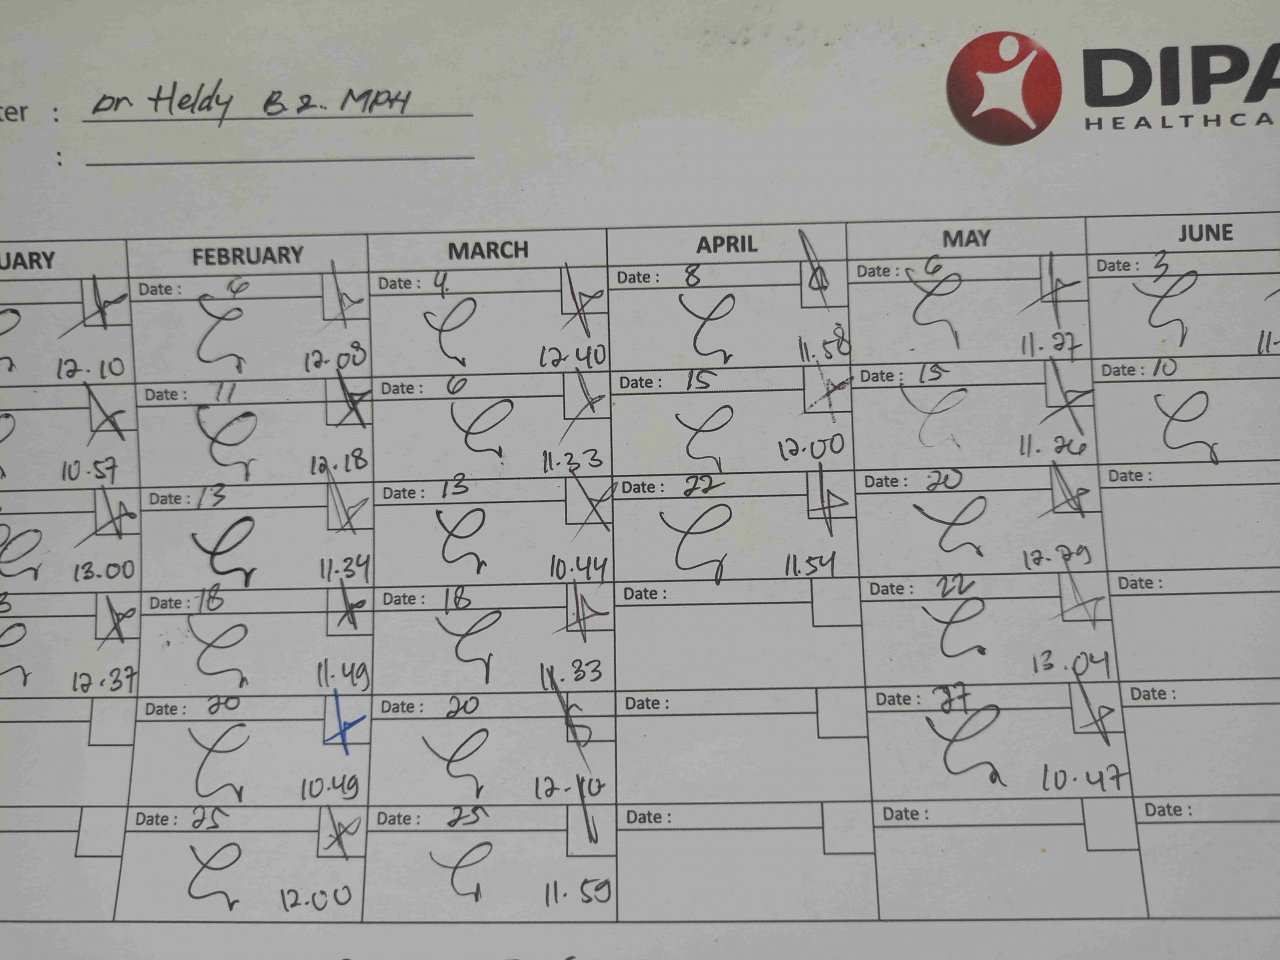 ter : Dr Heldy B2.. MPH
:
DIPA
HEALTHCA
UARY FEBRUARY MARCH APRIL MAY JUNE
Date : 6 Date : 4. Date : 8 Date : 6 Date : 3
12.10 12.08 12.40 11.58 11.27 11-
Date : 11 Date : 6 Date : 15 Date : 15 Date : 10
10.57 12.18 11.33 12.00 11.26
Date : 13 Date : 13 Date : 22 Date : 20 Date :
13.00 11.34 10.44 11.54 12.29
3 Date : 18 Date : 18 Date : Date : 22 Date :
12.37 11.49 11.33 13.04
Date : 20 Date : 20 Date : Date : 27 Date :
10.49 12.10 10.47
Date : 25 Date : 25 Date : Date : Date :
12.00 11.59